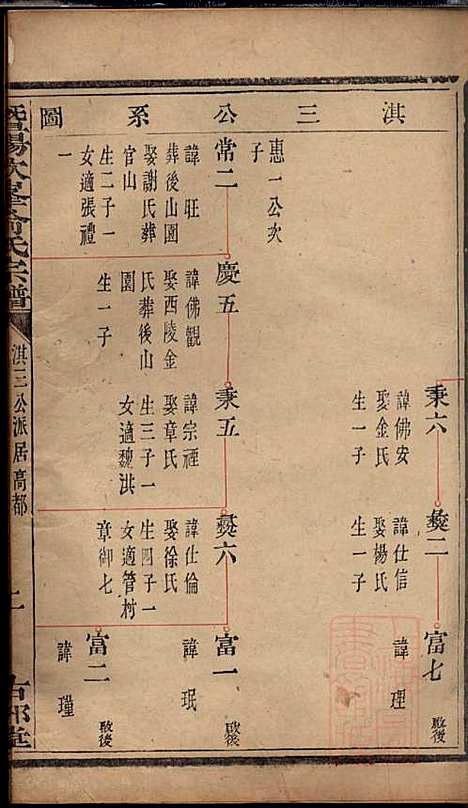 淇三公系圖
秉六
諱佛安
娶金氏
生一子
彜二
諱仕信
娶楊氏
生一子
富七
諱理
啟後
惠一公次
子
常二
諱旺
葬後山園
娶謝氏葬
官山
生二子一
女適張禮
一
慶五
諱佛觀
娶西陵金
氏葬後山
園
生一子
秉五
諱宗禋
娶章氏
生三子一
女適魏淇
彜六
諱仕倫
娶徐氏
生四子一
女適管村
章御七
富一
諱珉
啟後
富二
諱瑾
啟後
暨陽次峯俞氏宗譜
淇三公派居高都